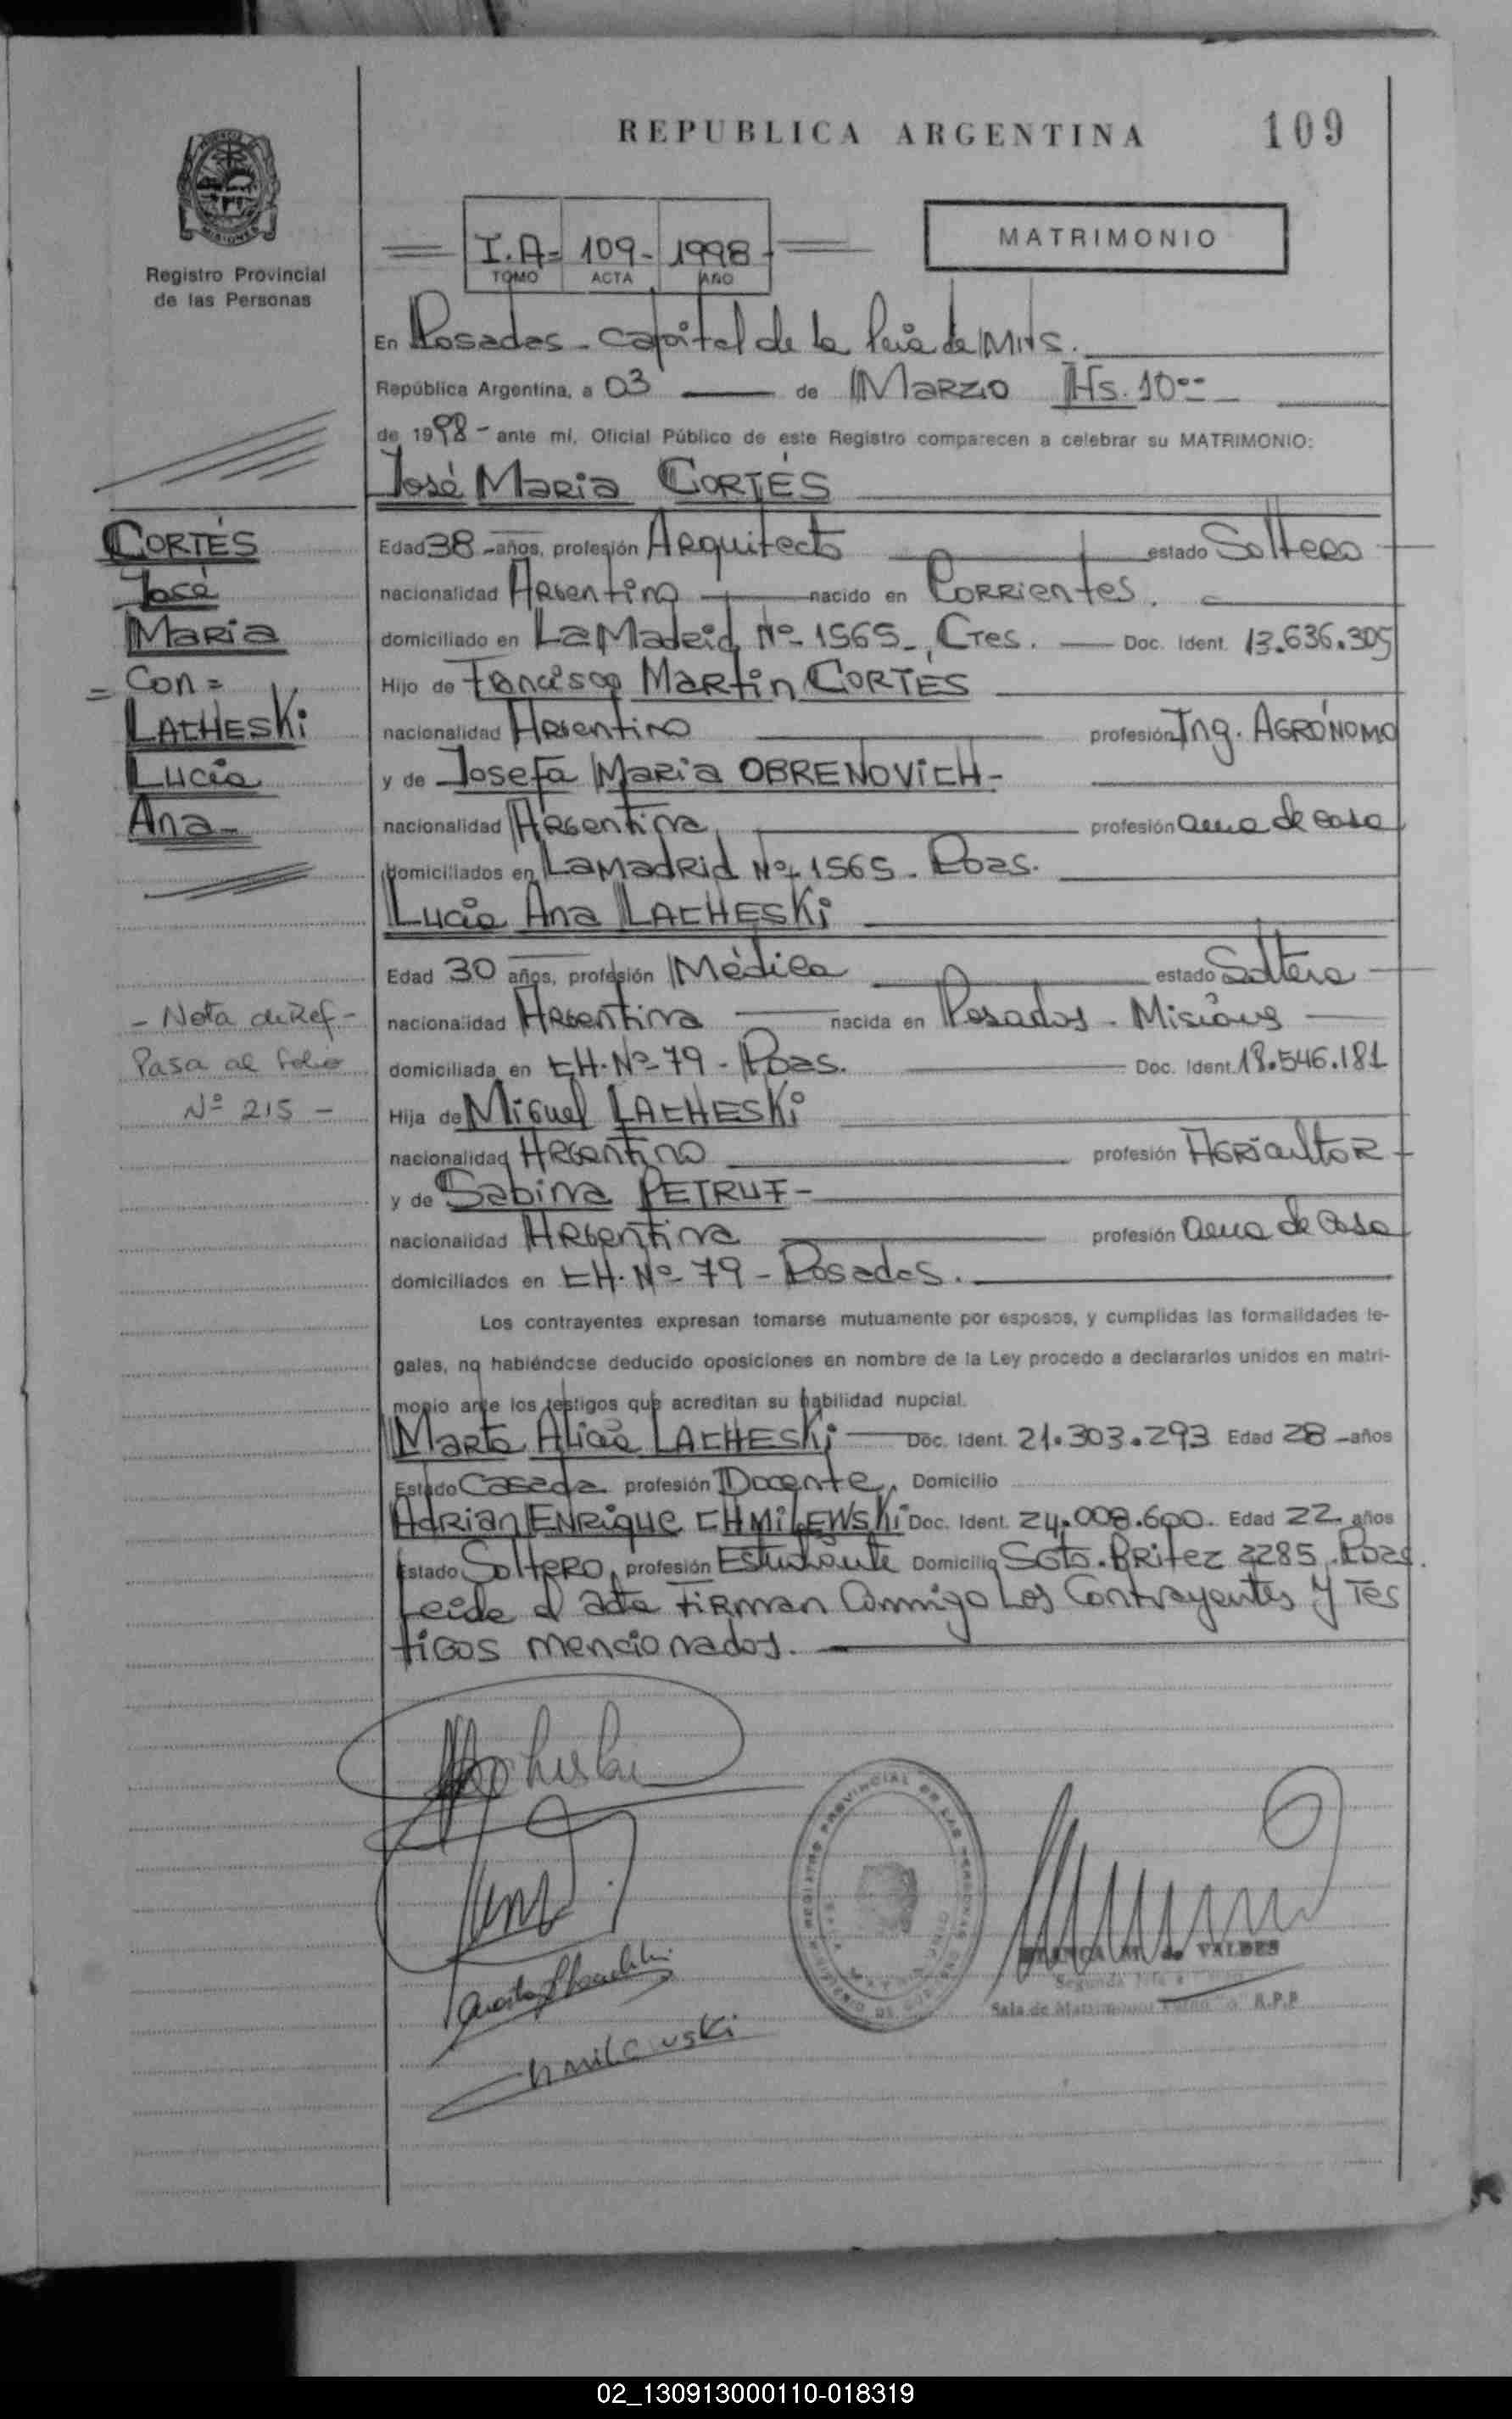 REPUBLICA ARGENTINA
109
Registro Provincial
de las Personas
I.A= 109- 1998-
TOMO ACTA AÑO
MATRIMONIO
En Posadas - Capital de la Pcia de Mnes.
República Argentina, a 03 de Marzo Hs. 10--
de 1998 - ante mí, Oficial Público de este Registro comparecen a celebrar su MATRIMONIO:
José Maria CORTÉS
CORTÉS
José
Maria
= Con =
LACHESKi
Lucia
Ana-
Edad 38 - años, profesión Arquitecto estado Soltero
nacionalidad Argentino nacido en Corrientes.
domiciliado en LaMadrid Nº 1565-, Ctes. Doc. Ident. 13.636.305
Hijo de Francisco Martin CORTÉS
nacionalidad Argentino profesión Ing. AGRÓNOMO
y de Josefa Maria OBRENOVICH-
nacionalidad Argentina profesión ama de casa
domiciliados en LaMadrid Nº 1565 - Pdas.
Lucia Ana LACHESKi
Edad 30 años, profesión Médica estado Soltera
nacionalidad Argentina nacida en Posadas - Misiones
domiciliada en CH. Nº 79 - Pdas. Doc. Ident. 18.546.181
Hija de Miguel LACHESKi
nacionalidad Argentino profesión Agricultor
y de Sabina PETRUF-
nacionalidad Argentina profesión ama de casa
domiciliados en CH. Nº 79 - Posadas.
- Nota de Ref -
Pasa al folio
Nº 215 -
Los contrayentes expresan tomarse mutuamente por esposos, y cumplidas las formalidades le-
gales, no habiéndose deducido oposiciones en nombre de la Ley procedo a declararlos unidos en matri-
monio ante los testigos que acreditan su habilidad nupcial.
Marta Alicia LACHESKi Doc. Ident. 21.303.293 Edad 28 - años
Estado Casada profesión Docente, Domicilio
Adrian ENRique CHMiLEWSKi Doc. Ident. 24.008.600. Edad 22 años
Estado Soltero, profesión Estudiante Domicilio Sgto. Britez 2285. Pdas.
Leida el acta Firman Conmigo Los Contrayentes y Tes
tigos mencionados.
REGISTRO PROVINCIAL DE LAS PERSONAS
M. de VALDES
Segunda
Sala de Matrimonios R.P.P.
Chmilewski
02_130913000110-018319